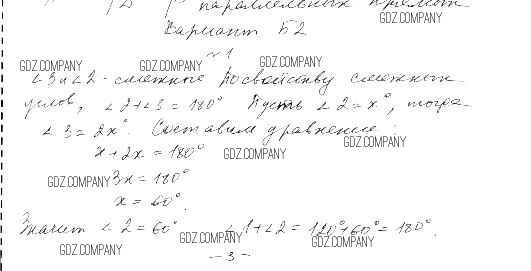 параллельных прямых
GDZ.COMPANY
Вариант Б2
№1
GDZ.COMPANY GDZ.COMPANY GDZ.COMPANY
∠3 и ∠2 - смежные. По свойству смежных
углов, ∠2+∠3 = 180° Пусть ∠2 = x°, тогда
∠3 = 2x°. Составим уравнение:
GDZ.COMPANY
x + 2x = 180° GDZ.COMPANY
GDZ.COMPANY 3x = 180°
x = 60°.
Значит ∠2 = 60° ∠1+∠2 = 120°+60° = 180°.
GDZ.COMPANY GDZ.COMPANY GDZ.COMPANY
- 3 -